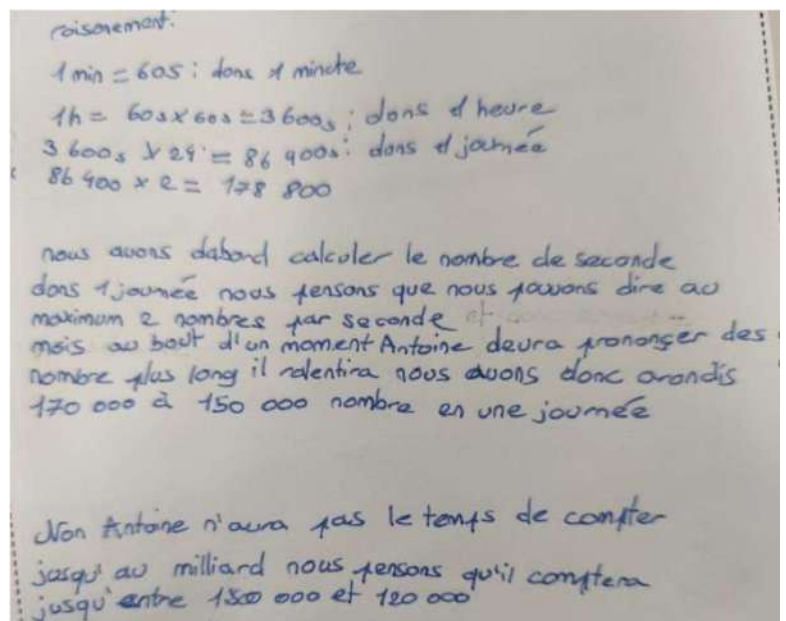 raisonement:
1 min = 60s : dans 1 minute
1h = 60s x 60s = 3600s ; dans 1 heure
3 600s x 24 = 86 400s : dans 1 journée
86 400 x 2 = 178 800
nous avons dabord calculer le nombre de seconde
dans 1 journée nous pensons que nous pouvons dire au
maximum 2 nombres par seconde et
mais au bout d'un moment Antoine devra prononçer des
nombre plus long il ralentira nous avons donc arondis
170 000 à 150 000 nombre en une journée
Non Antoine n'aura pas le temps de compter
jusqu'au milliard nous pensons qu'il comptera
jusqu'entre 150 000 et 120 000